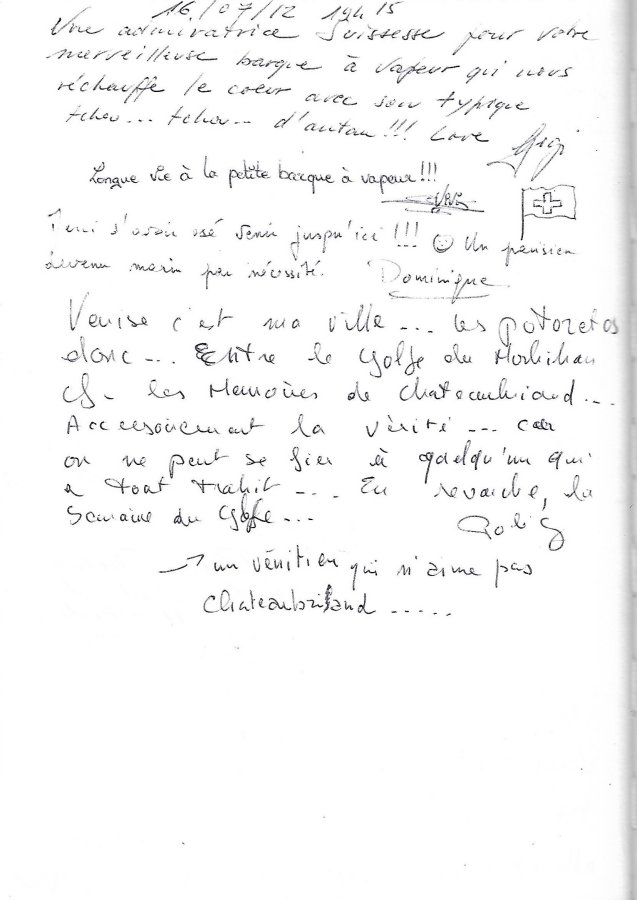 16/07/12 19h15
Une admiratrice Suissesse pour votre
merveilleuse barque à vapeur qui nous
réchauffe le coeur avec son typique
tchou... tchou... d'autan!!! Love
Longue vie à la petite barque à vapeur!!!
Merci d'avoir osé venir jusqu'ici!!! Un parisien
devenu marin par nécessité. Dominique
Venise c'est ma ville... les
donc... Entre le Golfe du Morbihan
les Memoires de Chateaubriand...
Accessoirement la vèritè... car
on ne peut se fier à quelqu'un qui
a tout trahit.... En revanche, la
Semaine du Golfe...
→ un vénitien qui n'aime pas
Chateaubriand.....